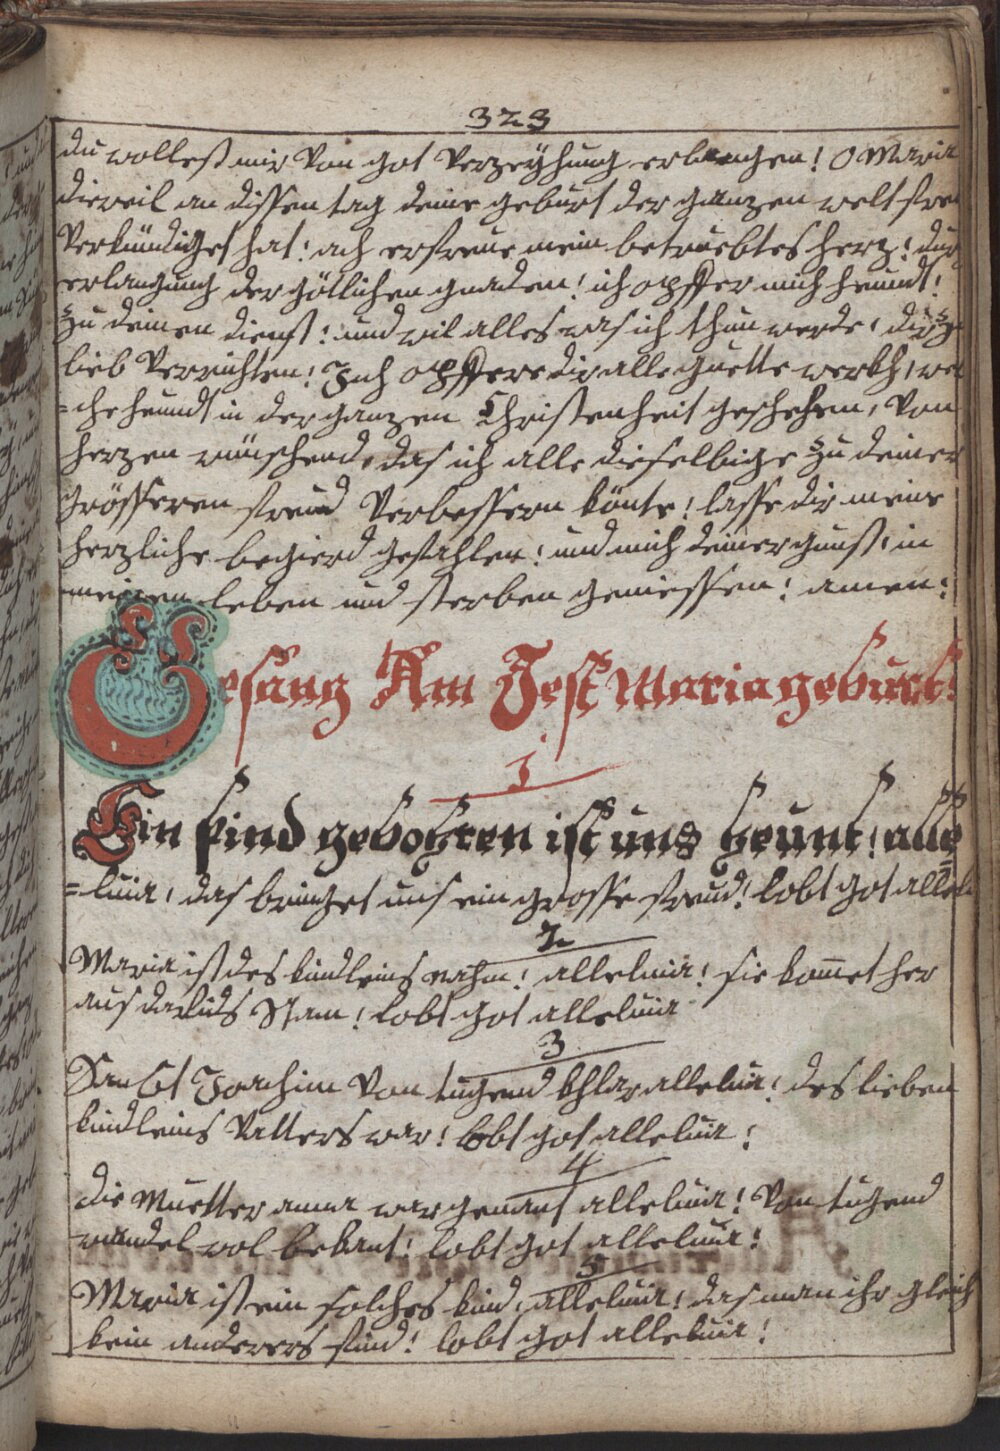 323
du wollest mir Von got Verzeÿhung erlangen! O Maria
dieweil an dissen tag deine geburt der ganzen welt freu
Verkündiget hat! ach erfreue mein betruebtes herz! durch
erlangung der götlichen gnaden! ich opffer mich heundt!
zu deinen dienst! und wil alles was ich thun werde! dir zu
lieb Verrichten! Ich opffere dir alle guette werkh, wel
=che heundt in der ganzen Christenheit geschehen, Von
herzen wünschend, das ich alle dieselbige zu deiner
grösseren freud Verbessern könte! lasse dir meine
herzliche begierd gefahlen! und mich deiner gunst, in
meinen leben und sterben geniessen! amen!
Gesang Am Fest Maria geburt!
1
Ein kind gebohren ist uns heunt! alle
=luia! das bringet uns ein grosse freud! lobt got allelu
2
Maria ist des kindleins nahm! alleluia! sie kom̄et her
aus davids Stam! lobt got alleluia
3
Sanct Joachim Von tugend khlar alleluia! des lieben
kindleins Vatters war! lobt got alleluia!
4
die Muetter anna war genant alleluia! Von tugend
wandel wol bekant! lobt got alleluia!
5
Maria ist ein solches kind! alleluia! das man ihr gleich
kein anderers find! lobt got alleluia!